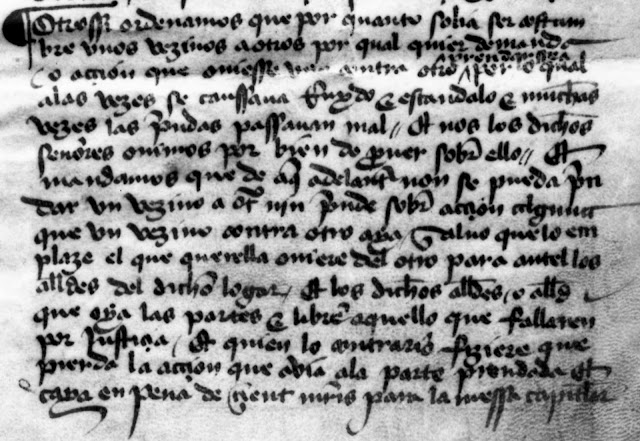 Otrossi ordenamos que por quanto solia ser costum
bre unos vezinos a otros por qual quier demanda
o acçion que oviesse uno contra otro prendar se por lo qual
a las vezes se caussava Ruydo e escandalo e muchas
vezes las prendas passavan mal // Et nos los dichos
señores ovimos por bien de prover sobre ello // Et
mandamos que de aqui adelante non se pueda pren
dar un vezino a otro nin prende sobre acçion alguna
que un vezino contra otro aya Salvo que lo em
plaze el que querella oviere del otro para ante los
alldes del dicho logar / Et los dichos alldes o alld
que oya las partes e libre aquello que fallaren
por Justiça / Et quien lo contrario fiziere que
pierda la acçion que avia a la parte prendada Et
caya en pena de çient mrs para la messa capitular